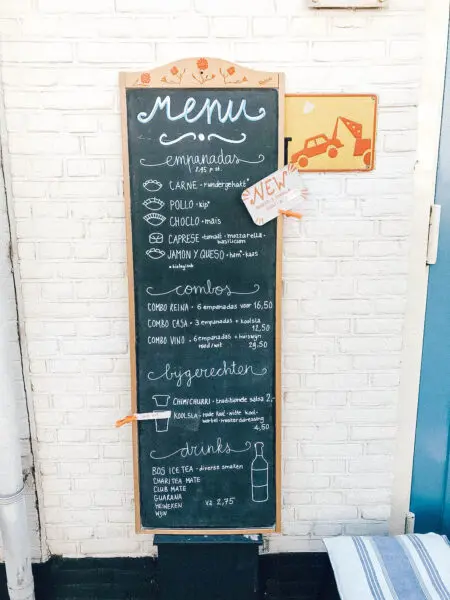 Menu
empanadas
2,95 p. st.
CARNE - rundergehakt*
POLLO - kip*
CHOCLO - maïs
CAPRESE - tomaat - mozzarella -
basilicum
JAMON Y QUESO - ham* - kaas
* biologisch
NEW
combos
COMBO REINA - 6 empanadas voor 16,50
COMBO CASA - 3 empanadas + koolsla
12,50
COMBO VINO - 6 empanadas + huiswijn
rood/wit 29,50
bijgerechten
CHIMICHURRI - traditionele salsa 2,-
KOOLSLA - rode kool - witte kool -
wortel - mosterddressing
4,50
drinks
BOS ICE TEA - diverse smaken
CHARITEA MATE
CLUB MATE
GUARANA
HEINEKEN
WIJN
va 2,75